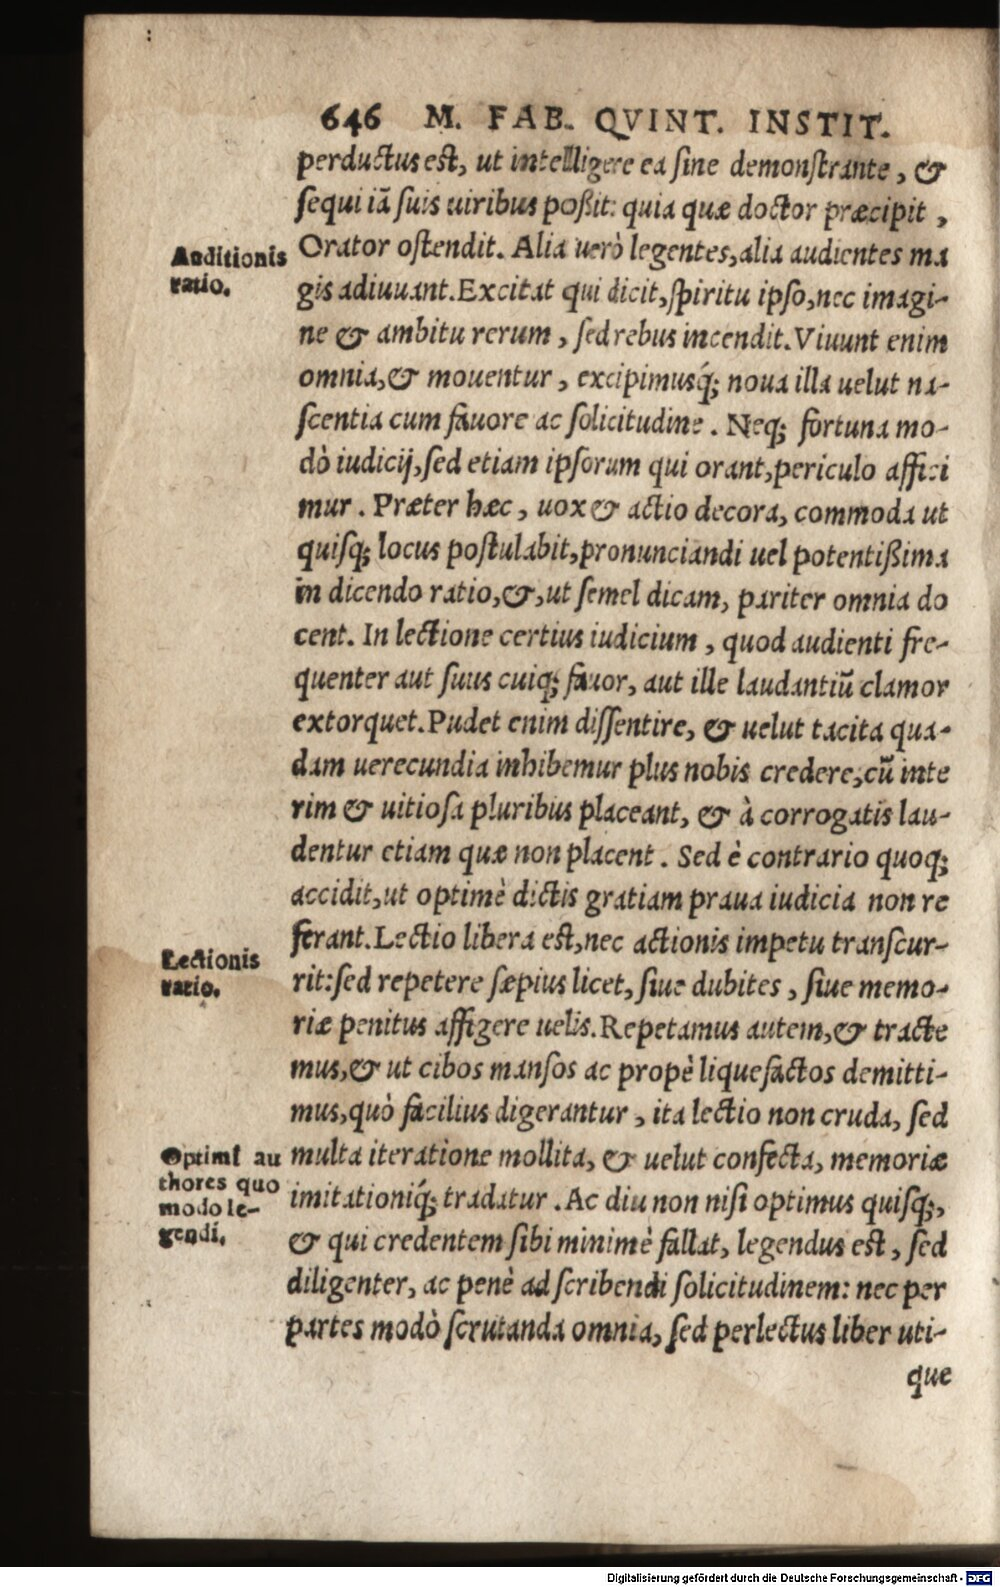 646 M. FAB. QVINT. INSTIT.
perductus est, ut intelligere ea ſine demonſtrante, &
ſequi iã ſuis uiribus poßit: quia quæ doctor præcipit,
Orator oſtendit. Alia uerò legentes, alia audientes ma
gis adiuuant. Excitat qui dicit, ſpiritu ipſo, nec imagi-
ne & ambitu rerum, ſed rebus incendit. Viuunt enim
omnia, & mouentur, excipimusq́; noua illa uelut na-
ſcentia cum fauore ac ſolicitudine. Neq; fortuna mo-
dò iudicij, ſed etiam ipſorum qui orant, periculo affici
mur. Præter hæc, uox & actio decora, commoda ut
quiſq; locus poſtulabit, pronunciandi uel potentißima
in dicendo ratio, &, ut ſemel dicam, pariter omnia do
cent. In lectione certius iudicium, quod audienti fre-
quenter aut ſuus cuiq; fauor, aut ille laudantiũ clamor
extorquet. Pudet enim diſſentire, & uelut tacita qua-
dam uerecundia inhibemur plus nobis credere, cũ inte
rim & uitioſa pluribus placeant, & à corrogatis lau-
dentur etiam quæ non placent. Sed è contrario quoq;
accidit, ut optimè dictis gratiam praua iudicia non re
ferant. Lectio libera est, nec actionis impetu tranſcur-
rit: ſed repetere ſæpius licet, ſiue dubites, ſiue memo-
riæ penitus affigere uelis. Repetamus autem, & tracte
mus, & ut cibos manſos ac propè liquefactos demitti-
mus, quò facilius digerantur, ita lectio non cruda, ſed
multa iteratione mollita, & uelut confecta, memoriæ
imitationiq́; tradatur. Ac diu non niſi optimus quiſq;,
& qui credentem ſibi minimè fallat, legendus est, ſed
diligenter, ac penè ad ſcribendi ſolicitudinem: nec per
partes modò ſcrutanda omnia, ſed perlectus liber uti-
que
Auditionis
ratio.
Lectionis
ratio.
Optimi au
thores quo
modo le-
gendi.
Digitalisierung gefördert durch die Deutsche Forschungsgemeinschaft - DFG